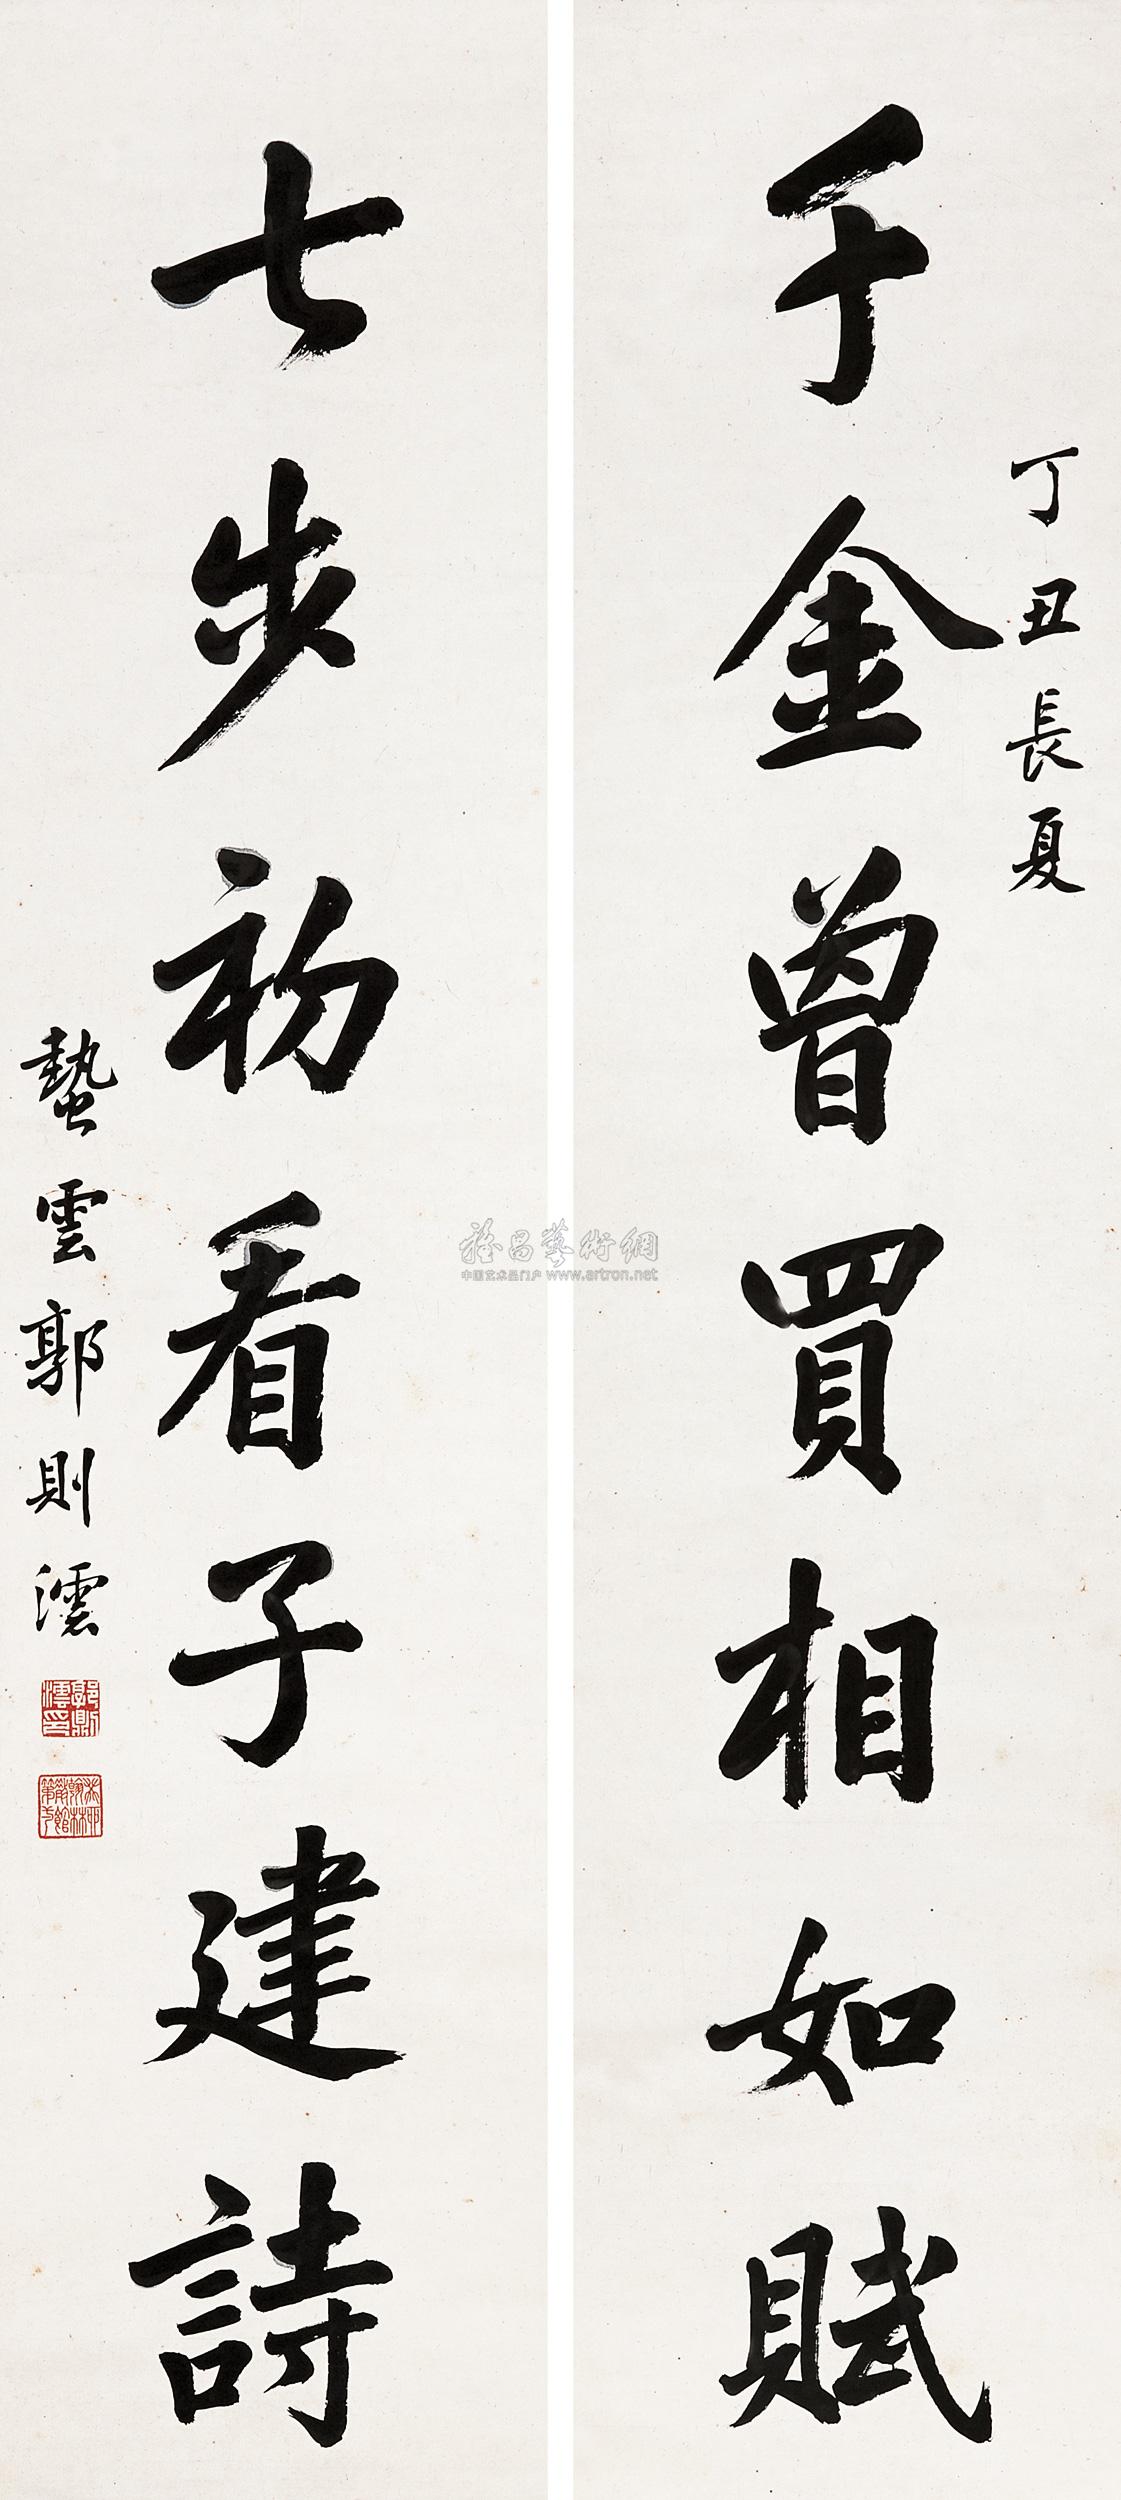 千金曾買相如賦
丁丑長夏
七步初看子建詩
蟄雲郭則澐
郭則澐印
雅昌藝術網
中国艺术品门户 www.artron.net